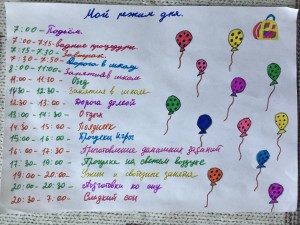 Мой режим дня.
7:00 - Подъём.
7:00 - 7:15 - водные процедуры
7:15 - 7:30 - Завтрак
7:30 - 7:50 - Дорога в школу
8:00 - 11:00 - Занятия в школе
11:00 - 11:30 - Обед
11:30 - 12:30 - Занятия в школе
12:30 - 13:00 - Дорога домой
13:00 - 14:30 - Отдых
14:30 - 15:00 - Полдник
15:00 - 16:00 - Прогулка Игры
16:00 - 17:30 - Приготовление домашних заданий
17:30 - 19:00 - Прогулка на свежем воздухе
19:00 - 20:00 - Ужин и свободное занятие
20:00 - 20:30 - Подготовка ко сну
20:30 - 7:00 - Сладкий сон